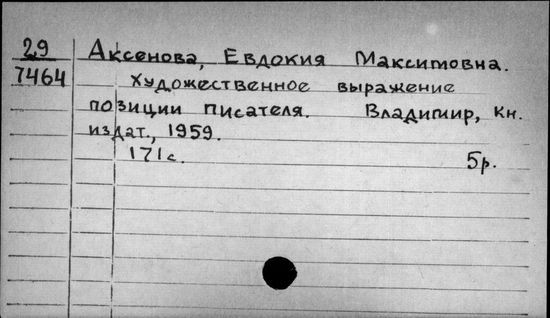 29
7464
Аксенова, Евдокия Максимовна.
Художественное выражение
позиции писателя. Владимир, Кн.
издат., 1959.
171с. 5р.